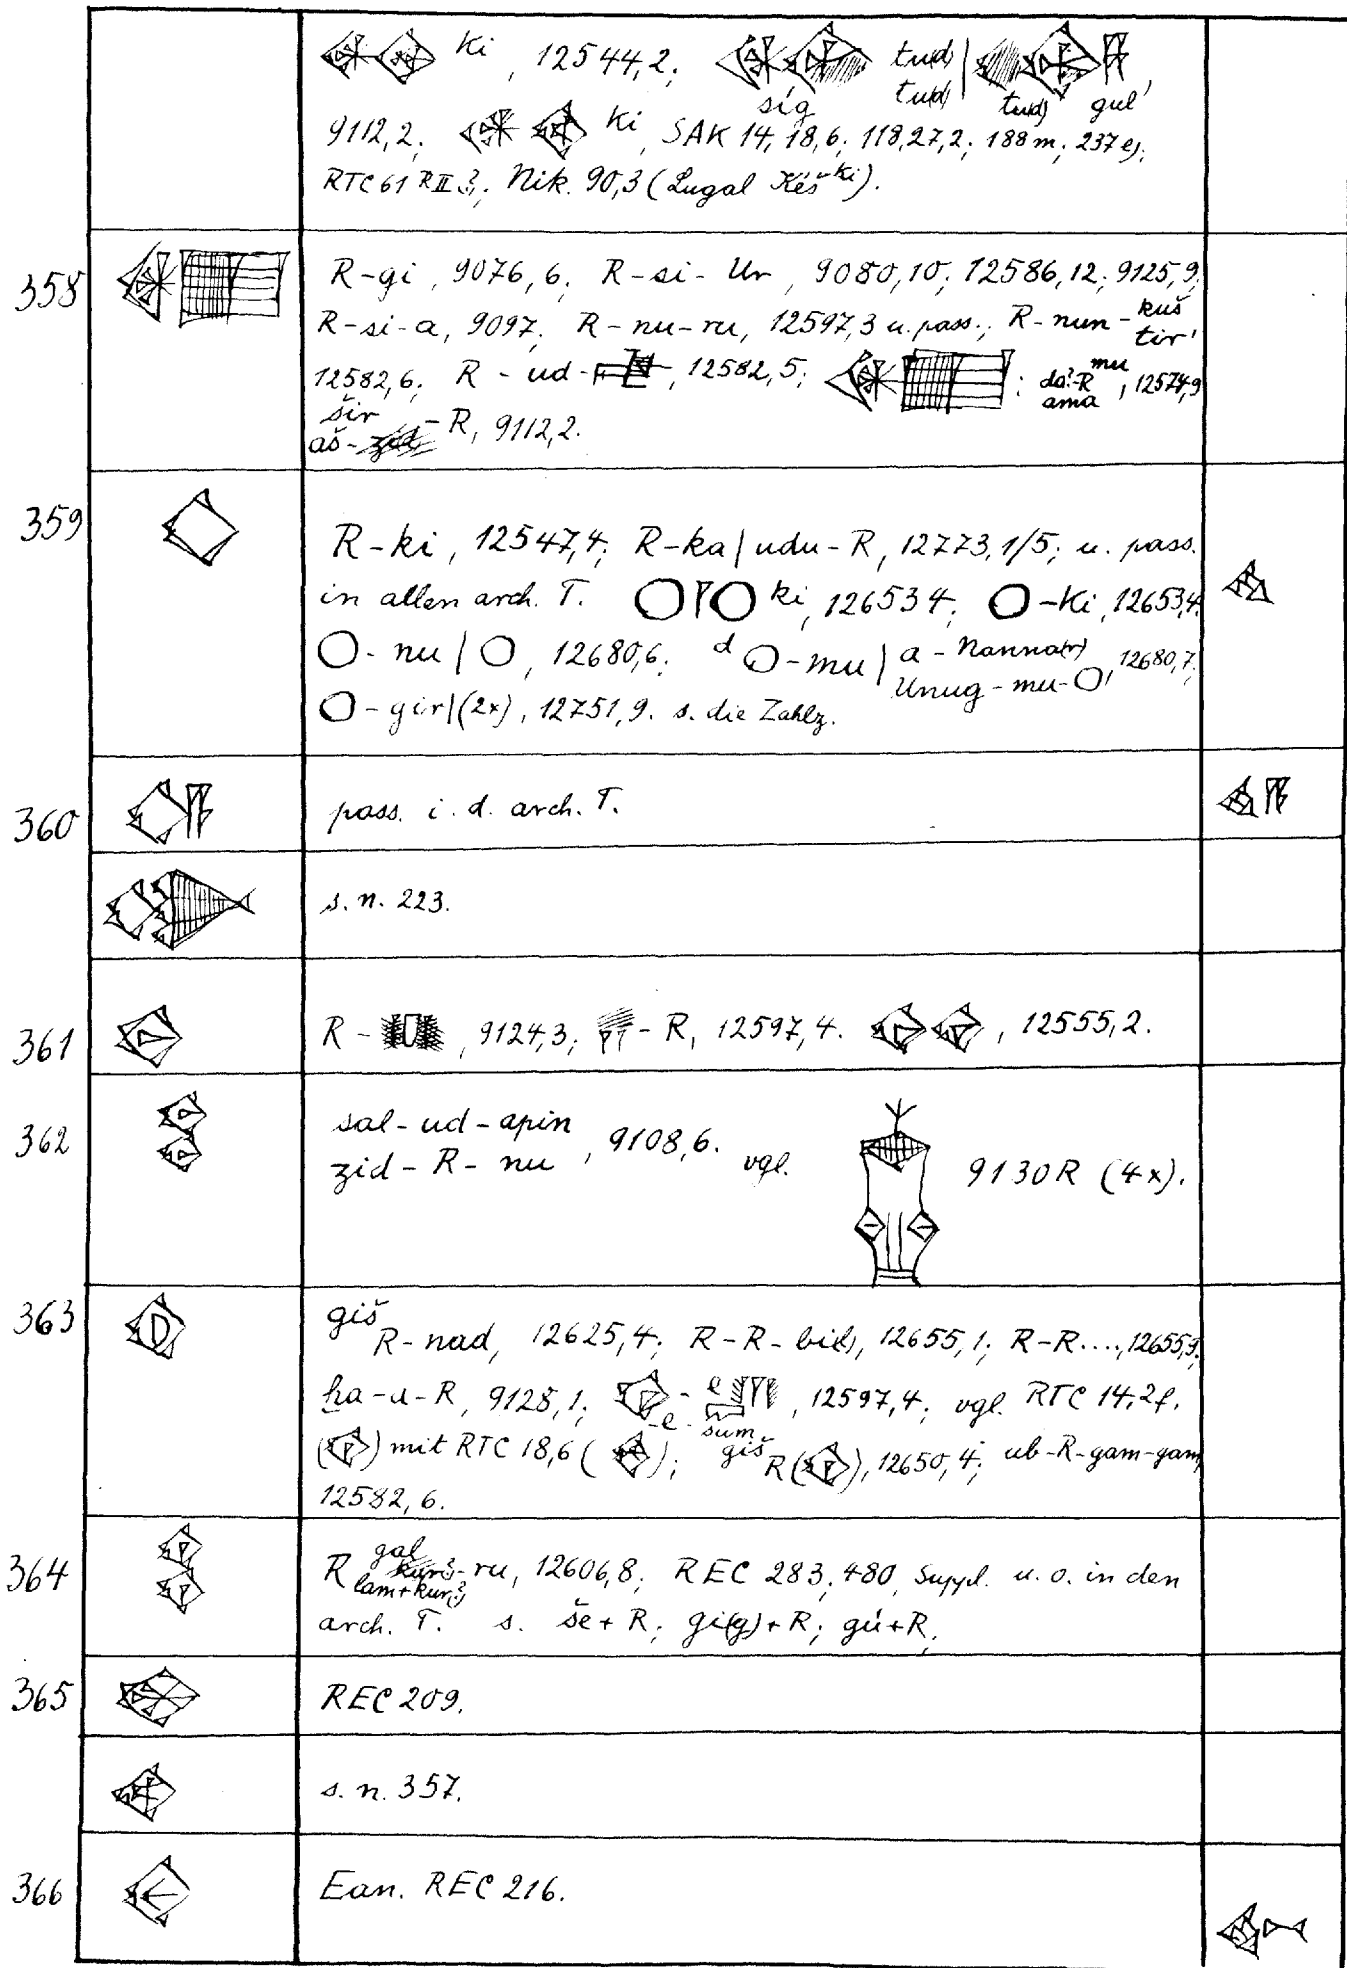 ki, 12544,2; tu(d) |
síg tu(d) tu(d) gul,
9112,2; ki, SAK 14, 18,6; 118,27,2; 188 m; 237 e);
RTC 61 R II 3; Nik. 90,3 (Lugal Kèš ki).
358
R-gi, 9076,6; R-si-Ur, 9080,10; 12586,12; 9125,9;
R-si-a, 9097; R-nu-ru, 12597,3 u. pass.; R-nun-kuš tir,
12582,6; R-ud-, 12582,5; : da?-R mu ama, 12574,9
šir
aš- -R, 9112,2.
359
R-ki, 12547,4; R-ka | udu-R, 12773,1/5; u. pass.
in allen arch. T. ki, 12653 4; O-ki, 12653,4.
O-nu | O, 12680,6; d O-mu | a-Nanna(r) Unug-mu-O, 12680,7;
O-gir | (2x), 12751,9. s. die Zahlz.
360
pass. i. d. arch. T.
s. n. 223.
361
R-, 9124,3; -R, 12597,4. , 12555,2.
362
sal-ud-apin
zid-R-nu, 9108,6. vgl. 9130 R (4x).
363
giš R-nad, 12625,4; R-R-bi(l), 12655,1; R-R...., 12655,9.
ḫa-u-R, 9128,1; -e -e-sum, 12597,4; vgl. RTC 14,2f.
( ) mit RTC 18,6 ( ); giš R( ), 12650,4; ub-R-gam-gam,
12582,6.
364
R gal lam+kur? -ru, 12606,8; REC 283; 480, Suppl. u. o. in den
arch. T. s. še+R; gi(g)+R; gú+R;
365
REC 209.
s. n. 357.
366
Ean. REC 216.